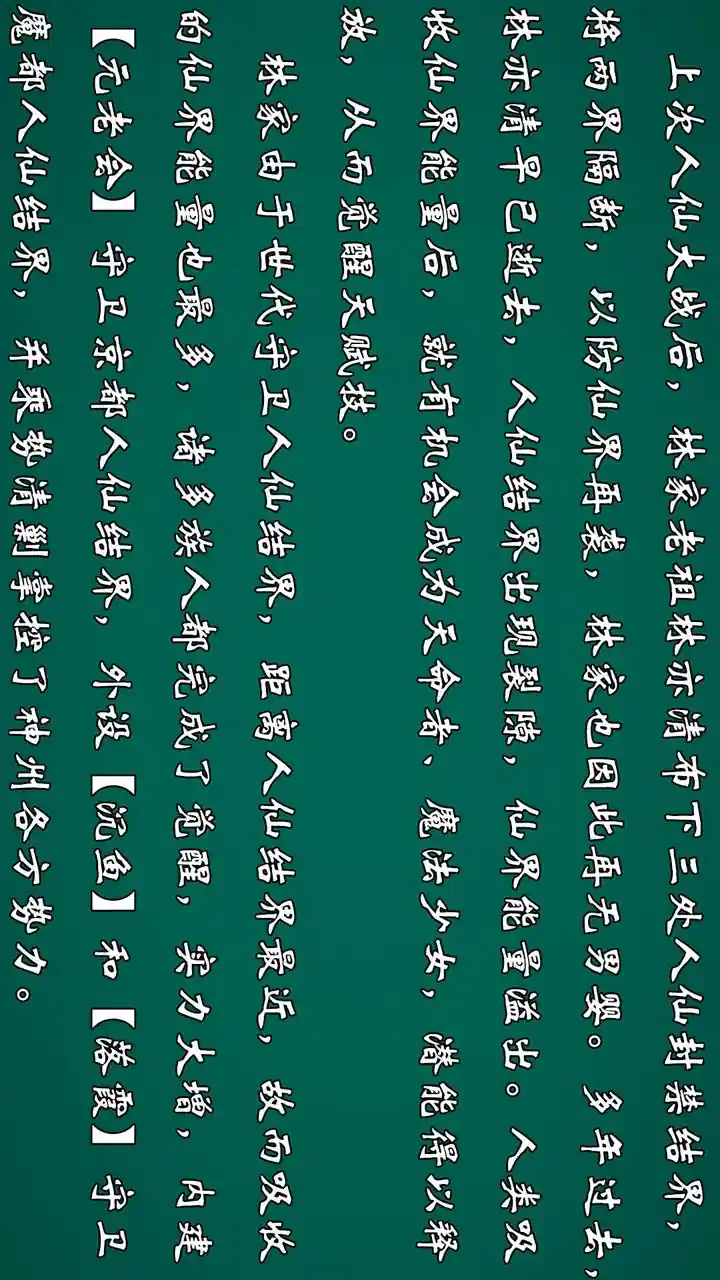 上次人仙大战后，林家老祖林亦清布下三处人仙封禁结界，
将两界隔断，以防仙界再袭，林家也因此再无男婴。多年过去，
林亦清早已逝去，人仙结界出现裂隙，仙界能量溢出。人类吸
收仙界能量后，就有机会成为天命者、魔法少女，潜能得以释
放，从而觉醒天赋技。
林家由于世代守卫人仙结界，距离人仙结界最近，故而吸收
的仙界能量也最多，诸多族人都完成了觉醒，实力大增，内建
【元老会】守卫京都人仙结界，外设【沉鱼】和【落霞】守卫
魔都人仙结界，并乘势清剿掌控了神州各方势力。